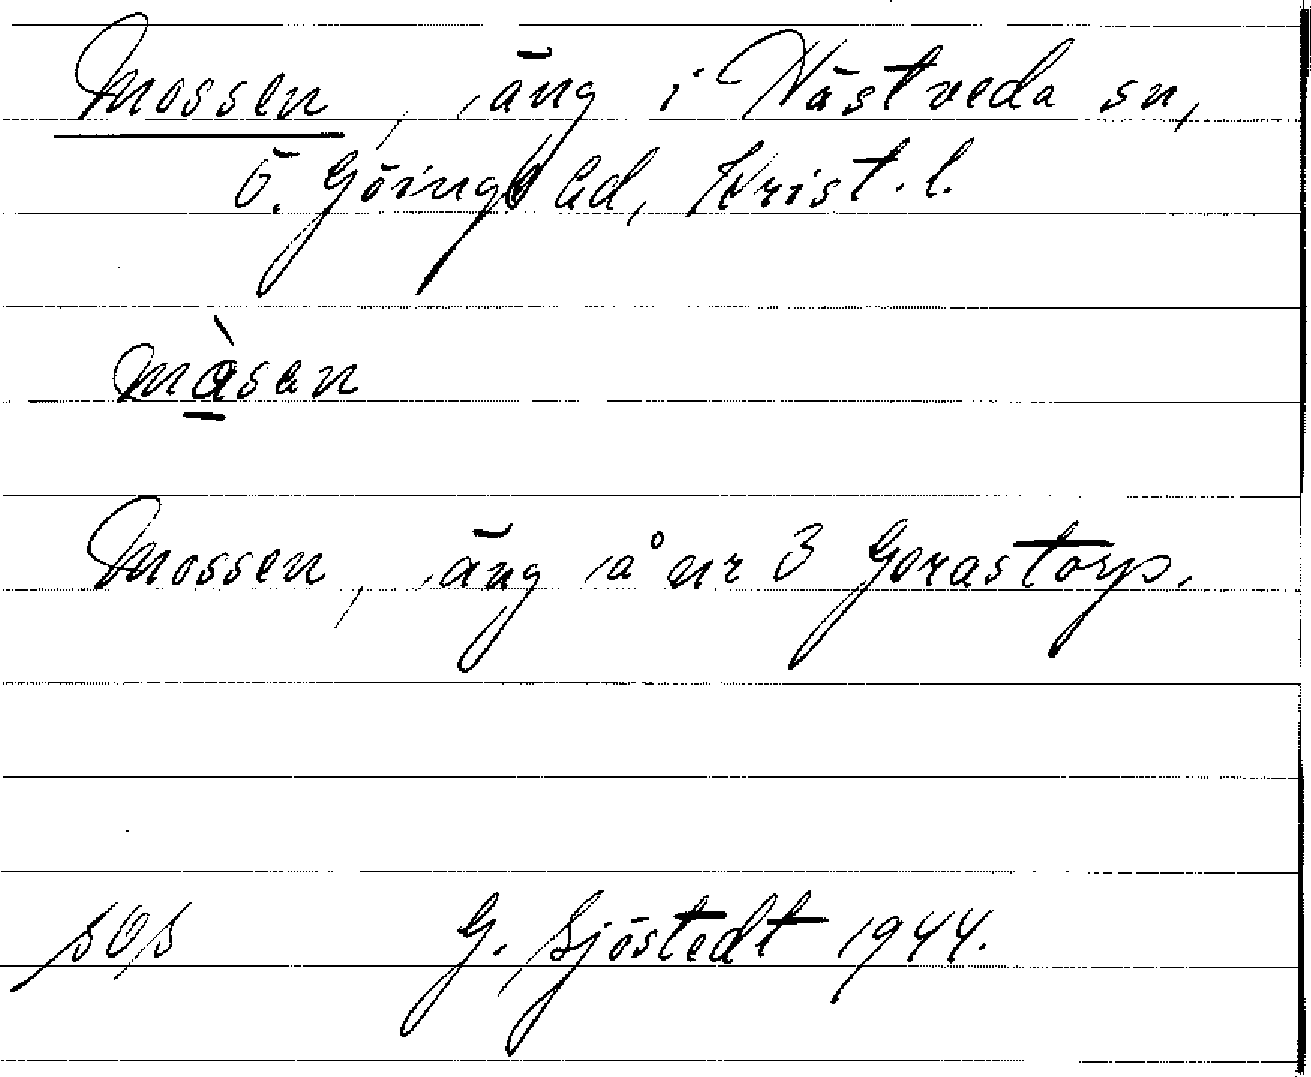 Mossen, äng i Västveda sn,
Ö. Göinge hd, Krist. l.
màsen
Mossen, äng å nr 3 Gorastorp.
G. Sjöstedt 1944.